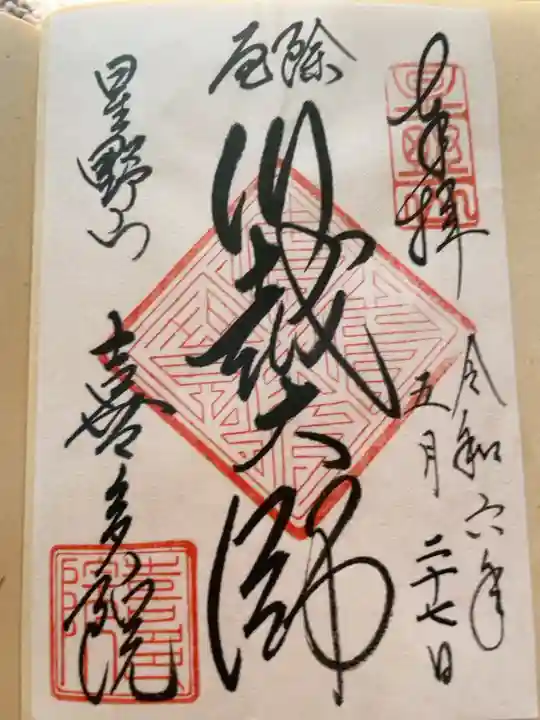 奉拝
令和六年
五月二十七日
厄除
川越大師
星野山
喜多院
星野山
喜多院